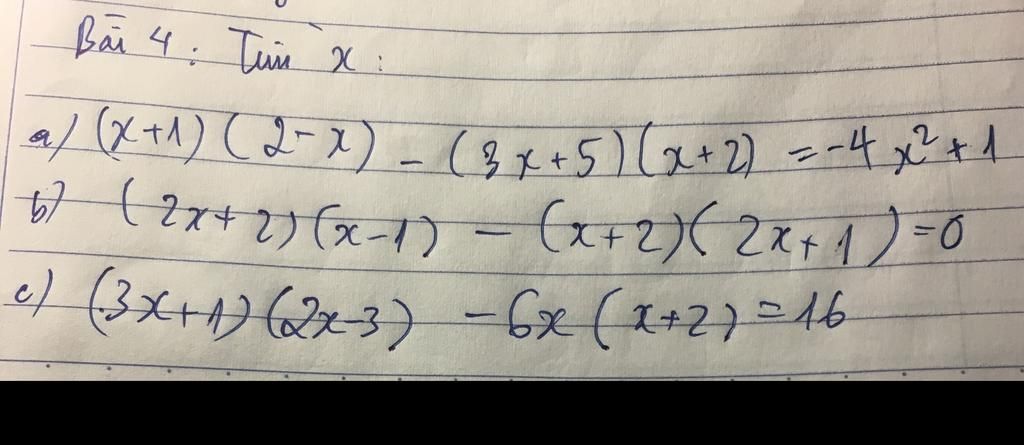 Bài 4: Tìm x:
a) (x+1)(2-x) - (3x+5)(x+2) = -4x² + 1
b) (2x+2)(x-1) - (x+2)(2x+1) = 0
c) (3x+1)(2x-3) - 6x(x+2) = 16